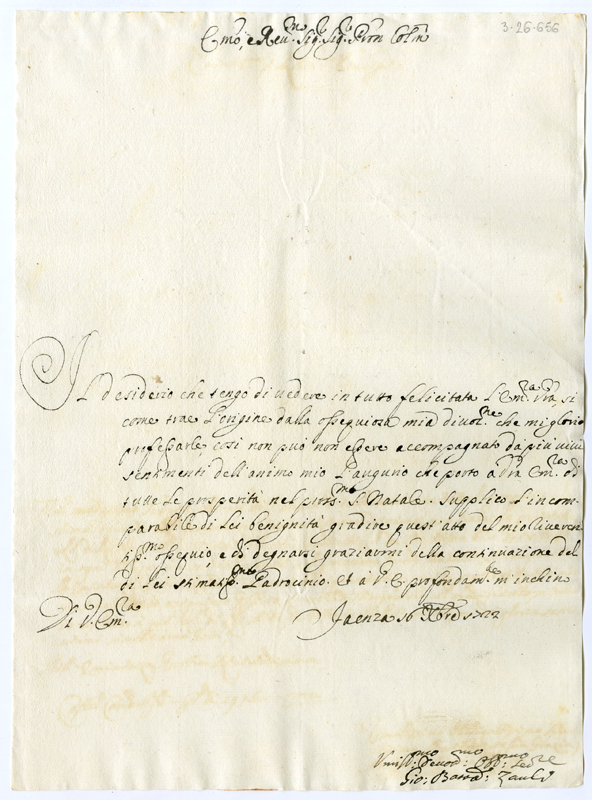 3-26-656
Emo, e Reu.mo Sig.r Sig.r Pron Colmo
Il desiderio che tengo di uedere in tutto felicitata L'Em.za Vra, si
come trae l'origine dalla ossequiosa mia diuoz.ne che mi glorio
professarle, così non può non essere accompagnato da più uiui
sentimenti dell'animo mio l'augurio che porto a Vra Em.za di
tutte le prosperità nel pross.mo S. Natale. Supplico l'incom
parabile di Lei benignità gradire quest'atto del mio riueren
tiss.mo ossequio, e di degnarsi graziarmi della continuazione del
di Lei stimatiss.mo Padrocinio. et à V. E. profondam.te m'inchino
Di V. Em.za
Faenza 16 Xbre 1722
Vmill.mo Deuot.mo Obb.mo Serure
Gio: Batta: Zauli